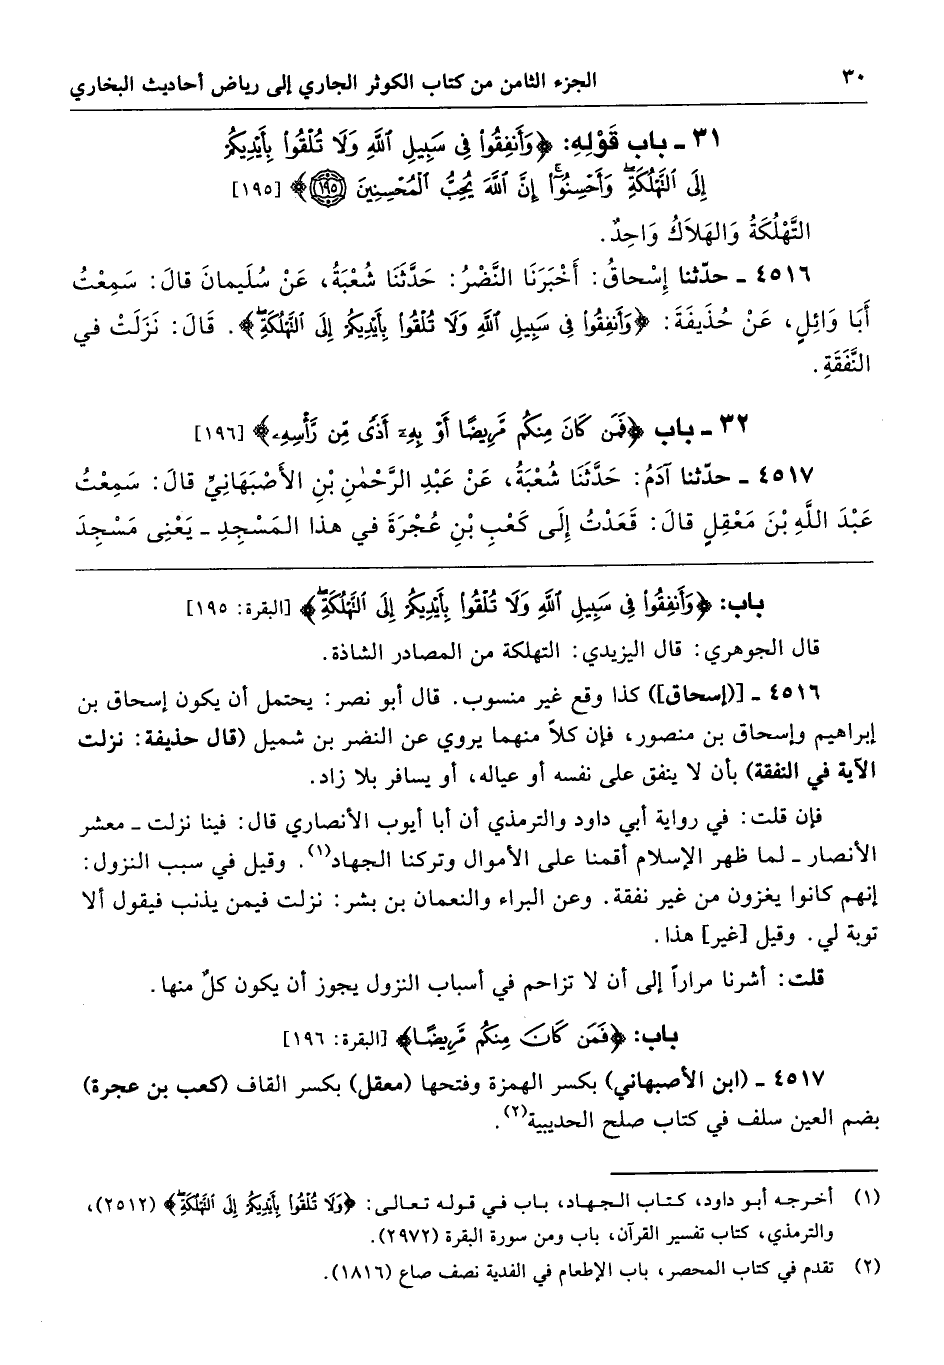 ٣٠ الجزء الثامن من كتاب الكوثر الجاري إلى رياض أحاديث البخاري
٣١ ـ باب قَوْلِهِ: ﴿وَأَنفِقُوا۟ فِى سَبِيلِ ٱللَّهِ وَلَا تُلْقُوا۟ بِأَيْدِيكُمْ
إِلَى ٱلتَّهْلُكَةِ ۛ وَأَحْسِنُوٓا۟ ۛ إِنَّ ٱللَّهَ يُحِبُّ ٱلْمُحْسِنِينَ ١٩٥﴾ [١٩٥]
التَّهْلُكَةُ وَالهَلَاكُ وَاحِدٌ.
٤٥١٦ ـ حدّثنا إِسْحاقُ: أَخْبَرَنَا النَّضْرُ: حَدَّثَنَا شُعْبَةُ، عَنْ سُلَيمانَ قالَ: سَمِعْتُ
أَبَا وَائِلٍ، عَنْ حُذَيفَةَ: ﴿وَأَنفِقُوا۟ فِى سَبِيلِ ٱللَّهِ وَلَا تُلْقُوا۟ بِأَيْدِيكُمْ إِلَى ٱلتَّهْلُكَةِ ۛ﴾. قالَ: نَزَلَتْ في
النَّفَقَةِ.
٣٢ ـ باب ﴿فَمَن كَانَ مِنكُم مَّرِيضًا أَوْ بِهِۦٓ أَذًى مِّن رَّأْسِهِۦ﴾ [١٩٦]
٤٥١٧ ـ حدّثنا آدَمُ: حَدَّثَنَا شُعْبَةُ، عَنْ عَبْدِ الرَّحْمٰنِ بْنِ الأَصْبَهَانِيِّ قالَ: سَمِعْتُ
عَبْدَ اللَّهِ بْنَ مَعْقِلٍ قالَ: قَعَدْتُ إِلَى كَعْبِ بْنِ عُجْرَةَ في هذا المَسْجِدِ ـ يَعْنِي مَسْجِدَ
باب: ﴿وَأَنفِقُوا۟ فِى سَبِيلِ ٱللَّهِ وَلَا تُلْقُوا۟ بِأَيْدِيكُمْ إِلَى ٱلتَّهْلُكَةِ ۛ﴾ [البقرة: ١٩٥]
قال الجوهري: قال اليزيدي: التهلكة من المصادر الشاذة.
٤٥١٦ ـ [(إسحاق)] كذا وقع غير منسوب. قال أبو نصر: يحتمل أن يكون إسحاق بن
إبراهيم وإسحاق بن منصور، فإن كلاً منهما يروي عن النضر بن شميل (قال حذيفة: نزلت
الآية في النفقة) بأن لا ينفق على نفسه أو عياله، أو يسافر بلا زاد.
فإن قلت: في رواية أبي داود والترمذي أن أبا أيوب الأنصاري قال: فينا نزلت ـ معشر
الأنصار ـ لما ظهر الإسلام أقمنا على الأموال وتركنا الجهاد(١). وقيل في سبب النزول:
إنهم كانوا يغزون من غير نفقة. وعن البراء والنعمان بن بشر: نزلت فيمن يذنب فيقول ألا
توبة لي. وقيل [غير] هذا.
قلت: أشرنا مراراً إلى أن لا تزاحم في أسباب النزول يجوز أن يكون كلٌ منها.
باب: ﴿فَمَن كَانَ مِنكُم مَّرِيضًا﴾ [البقرة: ١٩٦]
٤٥١٧ ـ (ابن الأصبهاني) بكسر الهمزة وفتحها (معقل) بكسر القاف (كعب بن عجرة)
بضم العين سلف في كتاب صلح الحديبية(٢).
(١) أخرجه أبو داود، كتاب الجهاد، باب في قوله تعالى: ﴿وَلَا تُلْقُوا۟ بِأَيْدِيكُمْ إِلَى ٱلتَّهْلُكَةِ ۛ﴾ (٢٥١٢)،
والترمذي، كتاب تفسير القرآن، باب ومن سورة البقرة (٢٩٧٢).
(٢) تقدم في كتاب المحصر، باب الإطعام في الفدية نصف صاع (١٨١٦).